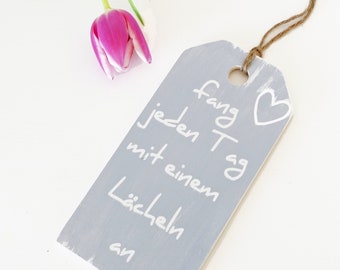 fang
jeden Tag
mit einem
Lächeln
an